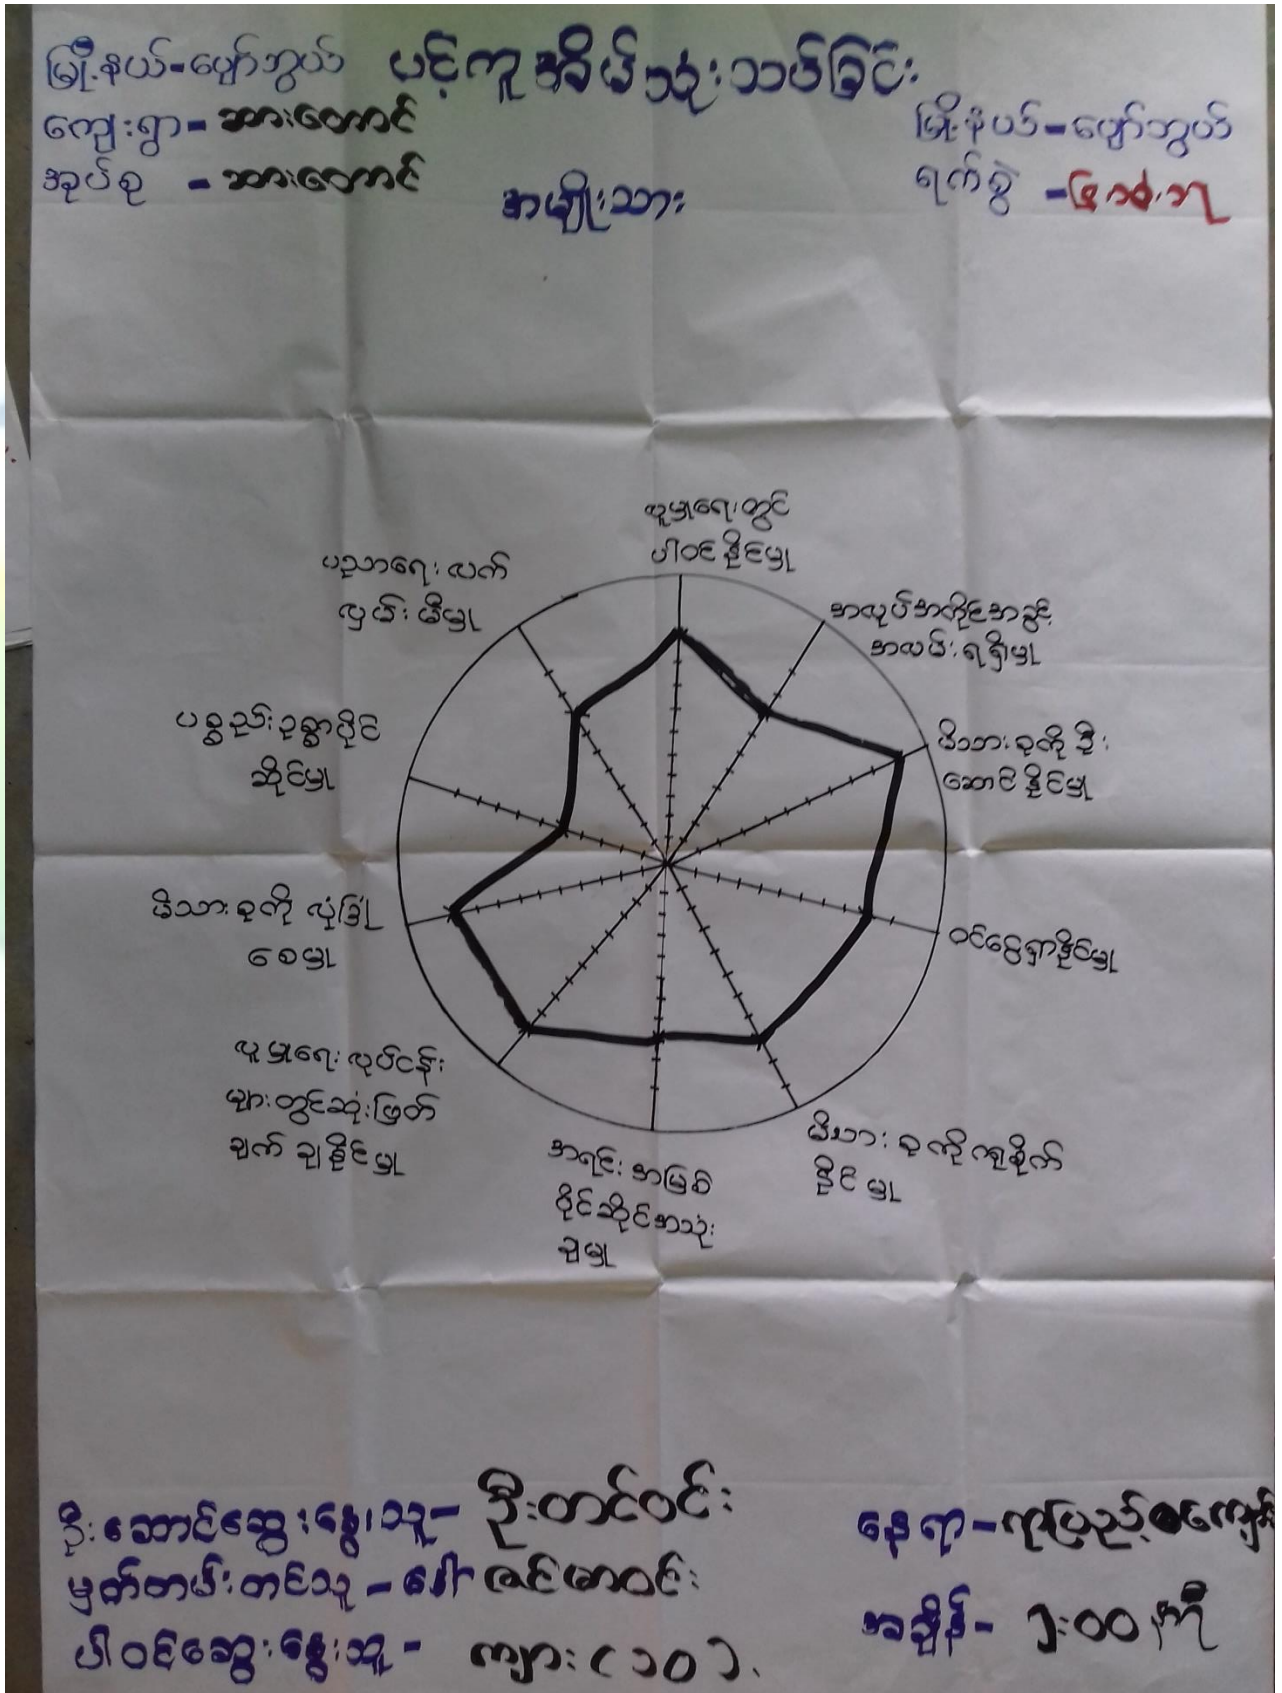 မြို့နယ်-ပျော်ဘွယ်
ပင့်ကူအိမ်သုံးသပ်ခြင်း
ကျေးရွာ-အားတောင်
အုပ်စု -အားတောင်
အမျိုးသား
မြို့နယ်-ပျော်ဘွယ်
ရက်စွဲ -
လူမှုရေးတွင်
ပါဝင်နိုင်မှု
အလုပ်အကိုင်အခွင့်
အလမ်းရရှိမှု
မိသားစုကိုဦး
ဆောင်နိုင်မှု
ဝင်ငွေရှာနိုင်မှု
မိသားစုကိုကျစိုက်
နိုင်မှု
အရင်းအမြစ်
ပိုင်ဆိုင်အသုံး
ချမှု
လူမှုရေးလုပ်ငန်း
များတွင်ဆုံးဖြတ်
ချက်ချနိုင်မှု
မိသားစုကို လုံခြုံ
စေမှု
ပစ္စည်းဥစ္စာပိုင်
ဆိုင်မှု
ပညာရေးလက်
လှမ်းမီမှု
ဦးဆောင်ဆွေးနွေးသူ-ဦးတင်ဝင်း
မှတ်တမ်းတင်သူ-ဒေါ်ဇင်မာဝင်း
ပါဝင်ဆွေးနွေးသူ-ကျား(၁၀)
နေရာ-
အချိန်- ၃:၀၀နာရီ